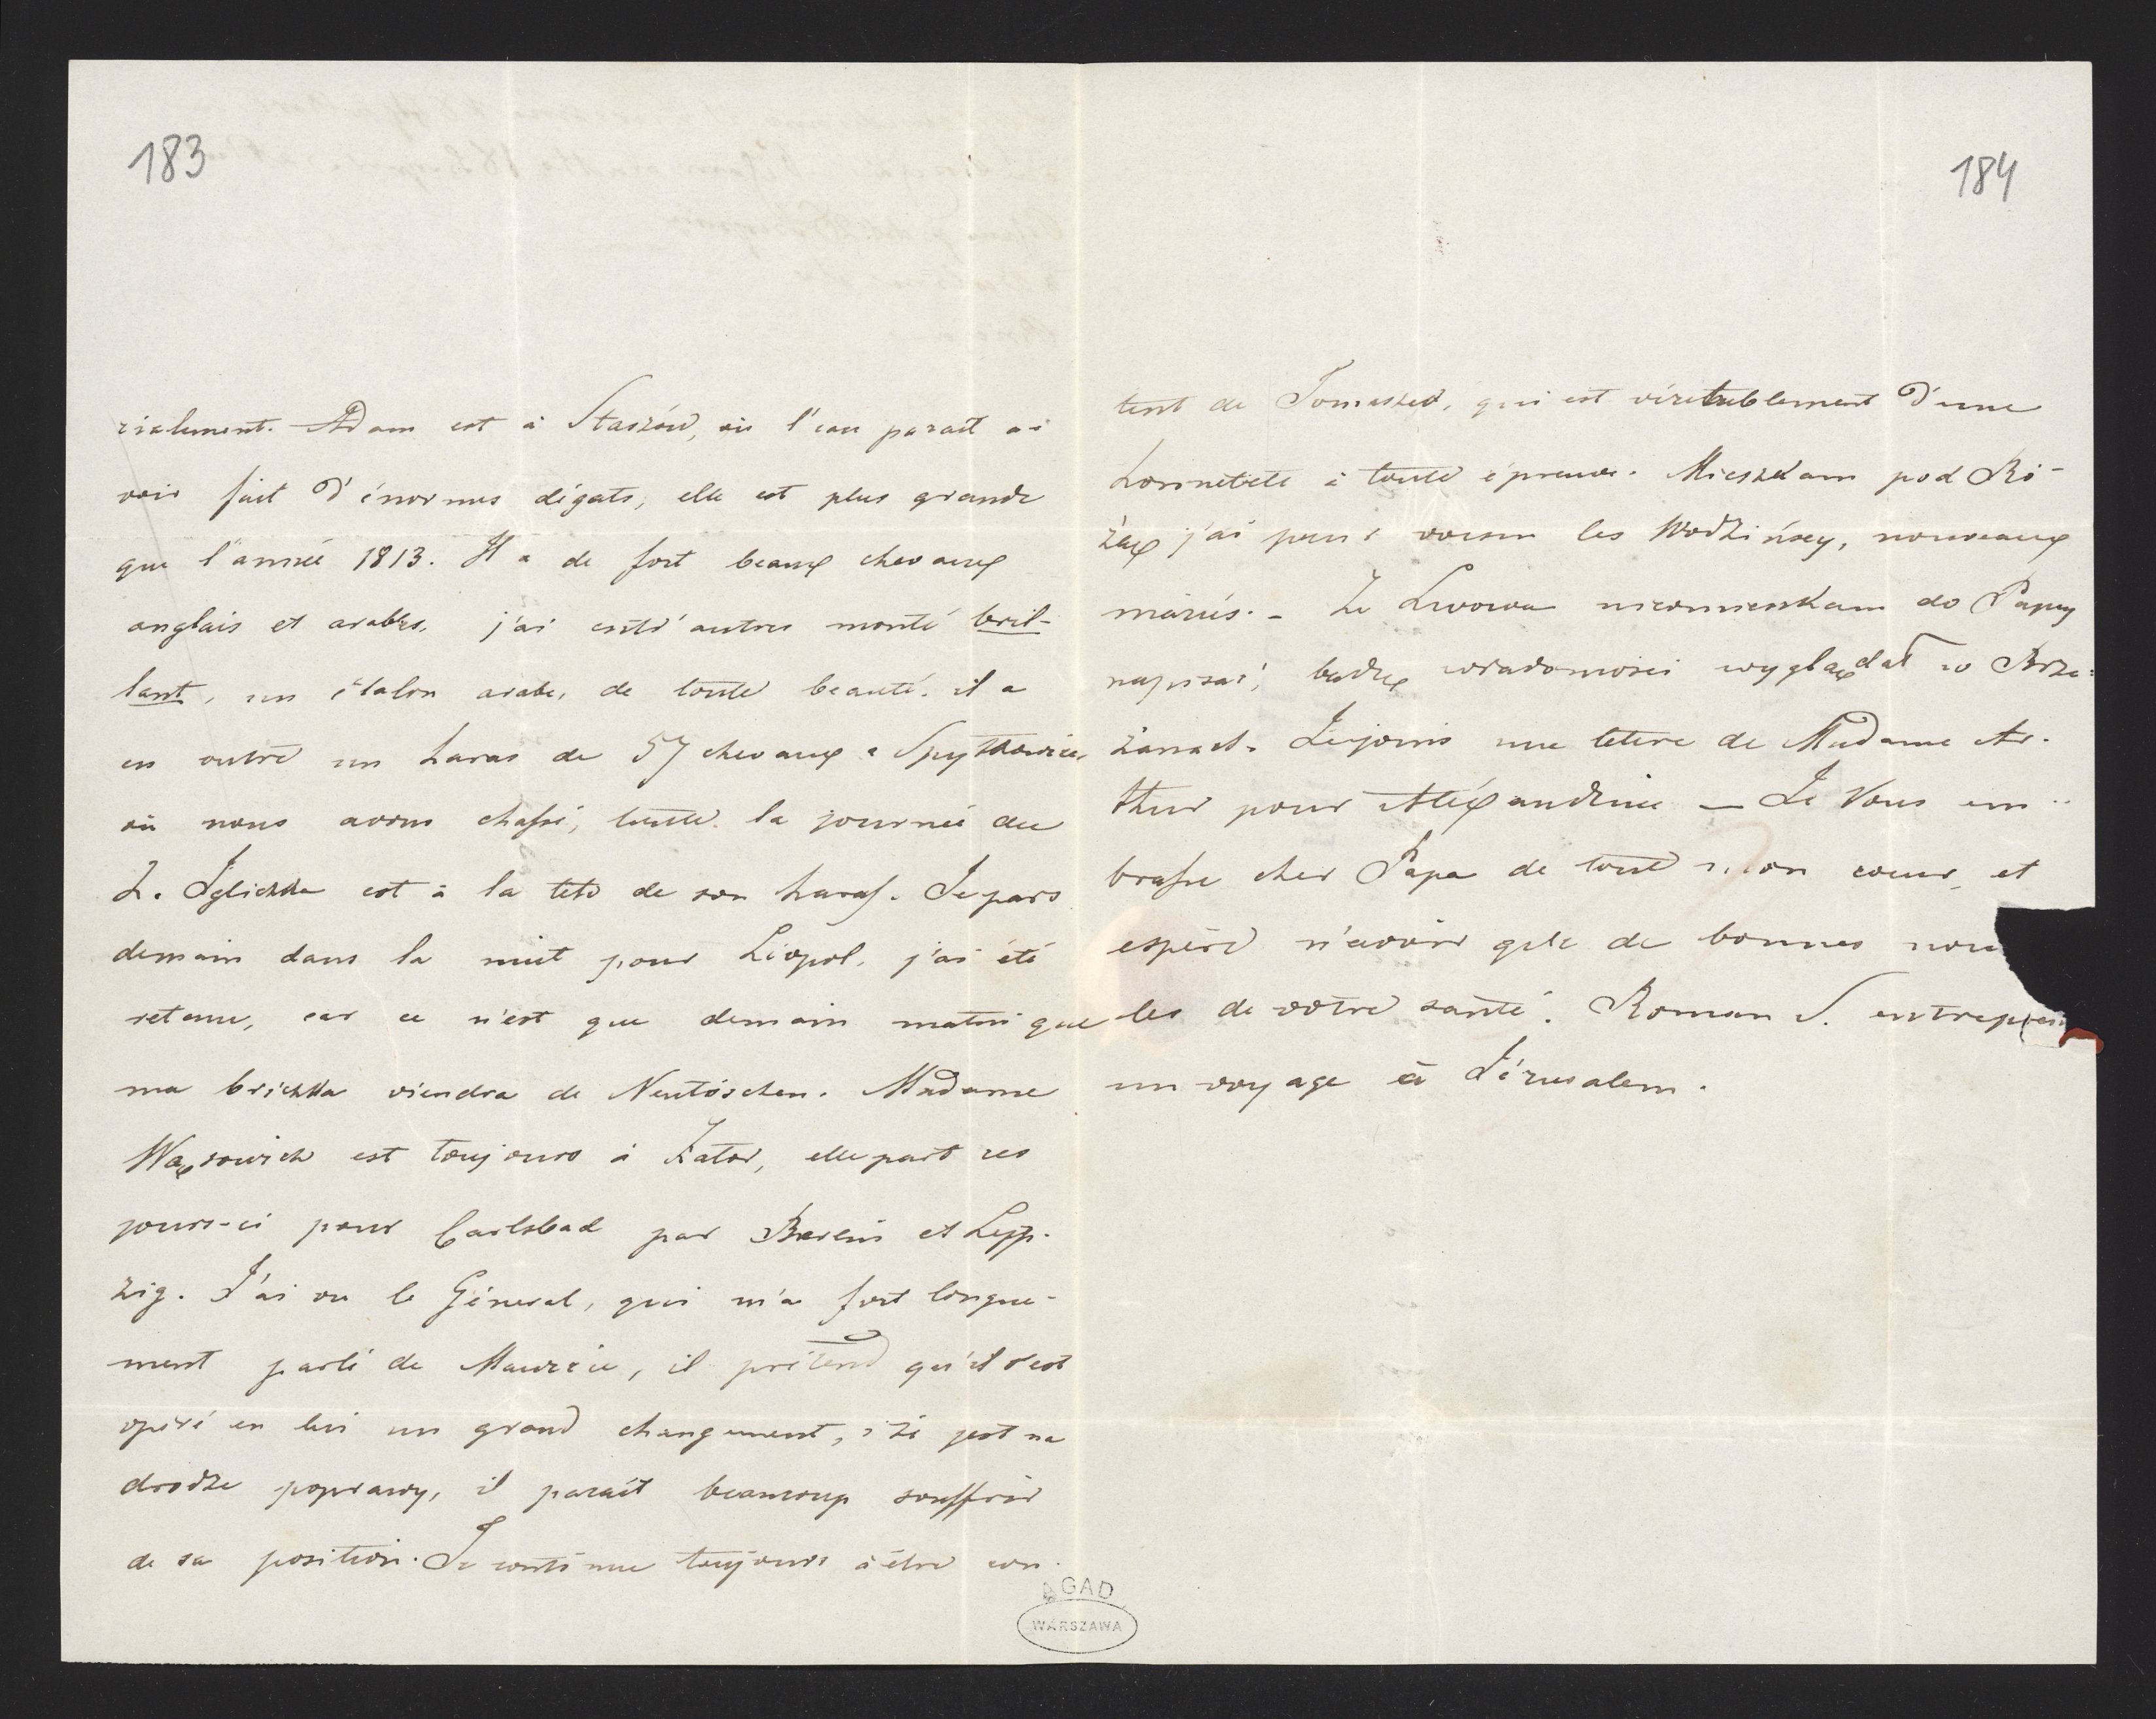 183
rialement. Adam est à Staszów, où l'eau parait a-
voir fait d'énormes dégats, elle est plus grande
que l'année 1813. Il a de fort beaux chevaux
anglais et arabes, j'ai entr'autres monté bril-
lant, un étalon arabe, de toute beauté. il a
en outre un haras de 57 chevaux a Spytkowice,
où nous avons chassé, toute la journée du
2. Iglichka est à la tete de son haras. Je pars
demain dans la nuit pour Léopol, j'ai été
retenu, car ce n'est que demain matin que
ma brichka viendra de Neutischen. Madame
Wąsowich est toujours à Zator, elle part ces
jours-ci pour Carlsbad par Breslau et Leip-
zig. J'ai vu le Géneral, qui m'a fort longue-
ment parlé de Maurice, il prétend qu'il s'est
opéré en lui un grand changement, i że jest na
drodze poprawy, il parait beaucoup souffrir
de sa position. Je continue toujours à être con-
184
tent de Tomaszek, qui est véritablement d'une
honnêteté à toute épreuve. Mieszkam pod Ró-
żą j'ai pour voisin les Wodzińscy, nouveaux
mariés. - Ze Lwowa nieomieszkam do Papy
napisać, będę wiadomości wyglądał w Brze-
żanach. Je joins une lettre de Madame Ar-
thur pour Alexandrine — Je Vous em-
brasse cher Papa de tout mon coeur, et
espère n'avoir que de bonnes nou
les de votre santé. Roman S. entrepren
un voyage à Jérusalem.
AGAD
WARSZAWA